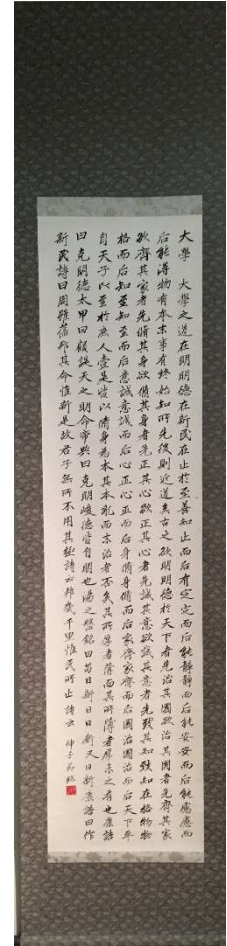 大學　大學之道在明明德在新民在止於至善知止而后有定定而后能靜靜而后能安安而后能慮慮而
后能得物有本末事有終始知所先後則近道矣古之欲明明德於天下者先治其國欲治其國者先齊其家
欲齊其家者先脩其身欲脩其身者先正其心欲正其心者先誠其意欲誠其意者先致其知致知在格物物
格而后知至知至而后意誠意誠而后心正心正而后身脩身脩而后家齊家齊而后國治國治而后天下平
自天子以至於庶人壹是皆以脩身為本其本亂而末治者否矣其所厚者薄而其所薄者厚未之有也康誥
曰克明德太甲曰顧諟天之明命帝典曰克明峻德皆自明也湯之盤銘曰苟日新日日新又日新康誥曰作
新民詩曰周雖舊邦其命惟新是故君子無所不用其極詩云邦畿千里惟民所止詩云